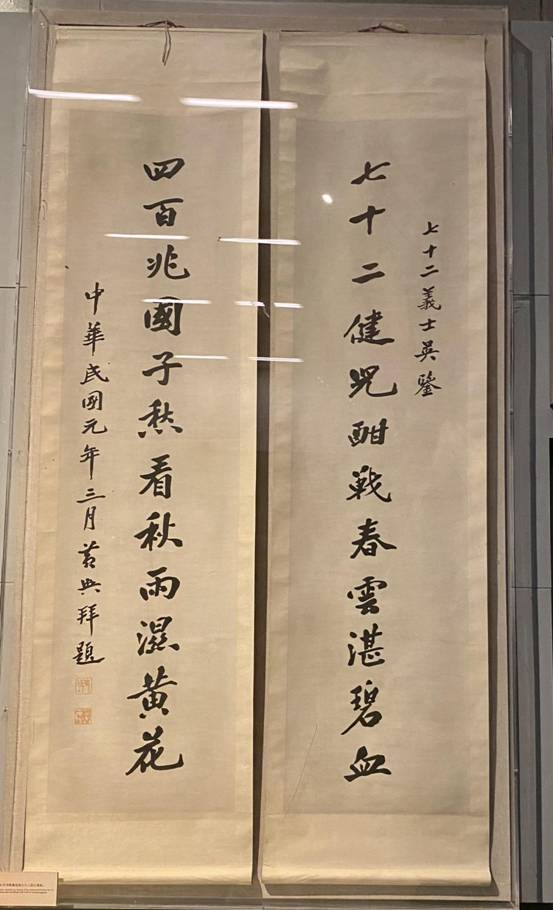 七十二義士英鑒
七十二健兒酣戰春雲湛碧血
四百兆國子愁看秋雨濕黃花
中華民國元年三月黃興拜題